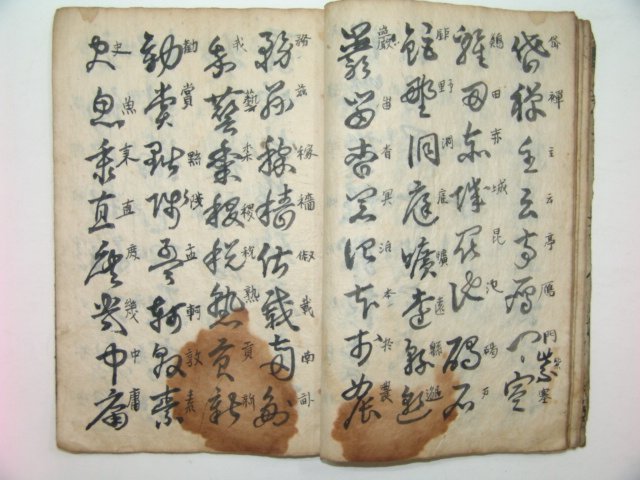 岱禪主云亭雁門紫塞
鷄田赤城昆池碣石
鉅野洞庭曠遠綿邈
巖岫杳冥治本於農
務茲稼穡俶載南畝
我藝黍稷稅熟貢新
勸賞黜陟孟軻敦素
史魚秉直庶幾中庸